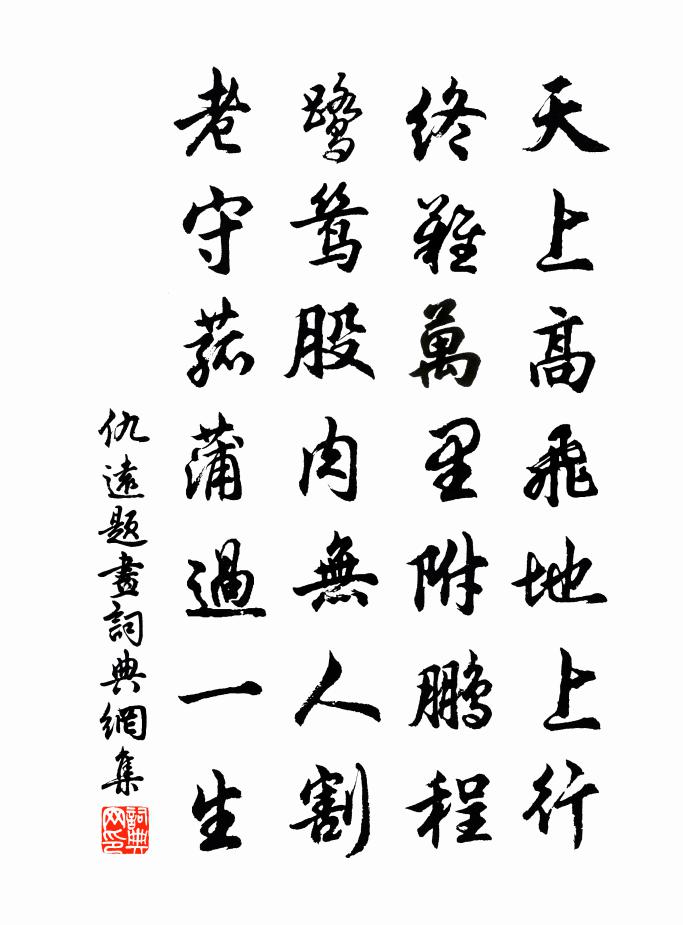 天上高飛地上行
終難萬里附鵬程
鷺鴛股肉無人割
老守菰蒲過一生
仇遠題畫詞典網集
詞典网印